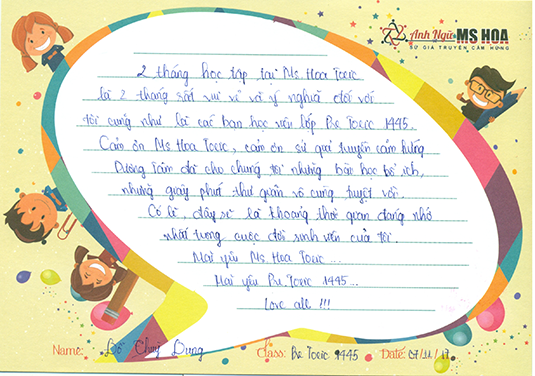 Anh Ngữ MS HOA
SỨ GIẢ TRUYỀN CẢM HỨNG
2 tháng học tập tại Ms Hoa Toeic
là 2 tháng rất vui vẻ và ý nghĩa đối với
tôi cũng như là các bạn học viên lớp Pre Toeic 1445.
Cảm ơn Ms Hoa Toeic, cảm ơn sứ giả truyền cảm hứng
Dương Tâm đã cho chúng tôi những bài học bổ ích,
những giây phút thư giãn vô cùng tuyệt vời.
Có lẽ, đây sẽ là khoảng thời gian đáng nhớ
nhất trong cuộc đời sinh viên của tôi.
Mãi yêu Ms Hoa Toeic ...
Mãi yêu Pre Toeic 1445...
Love all !!!
Name: Đỗ Thuỳ Dung Class: Pre Toeic 1445 Date: 07/11/17